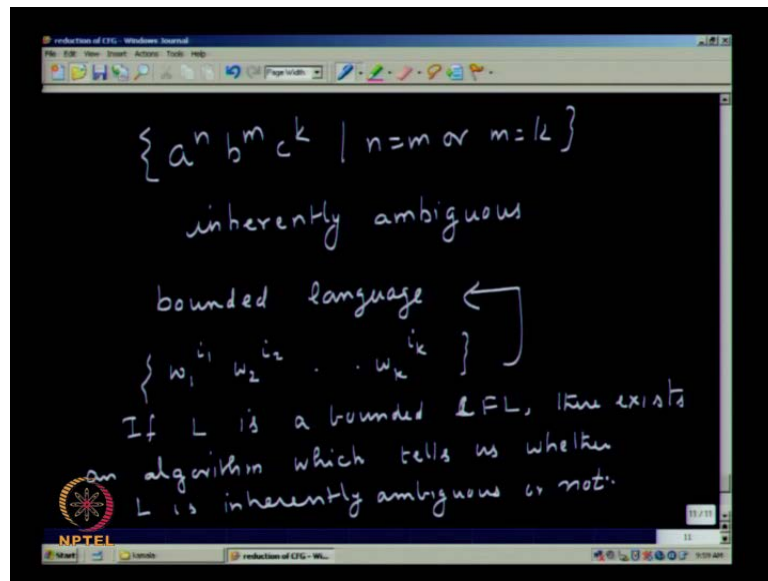 reduction of CFG - Windows Journal
File Edit View Insert Actions Tools Help
Page Width
{ aⁿ bᵐ cᵏ | n=m or m=k }
inherently ambiguous
bounded language
{ w₁^i₁ w₂^i₂ . . wₖ^iₖ }
If L is a bounded CFL, there exists
an algorithm which tells us whether
L is inherently ambiguous or not.
NPTEL
11 / 11
11
Start kamala reduction of CFG - Wi... 9:59 AM